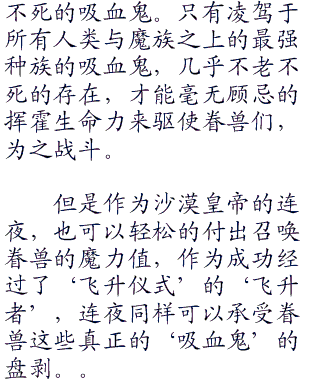 不死的吸血鬼。只有凌驾于
所有人类与魔族之上的最强
种族的吸血鬼，几乎不老不
死的存在，才能毫无顾忌的
挥霍生命力来驱使眷兽们，
为之战斗。
但是作为沙漠皇帝的连
夜，也可以轻松的付出召唤
眷兽的魔力值，作为成功经
过了‘飞升仪式’的‘飞升
者’，连夜同样可以承受眷
兽这些真正的‘吸血鬼’的
盘剥。。